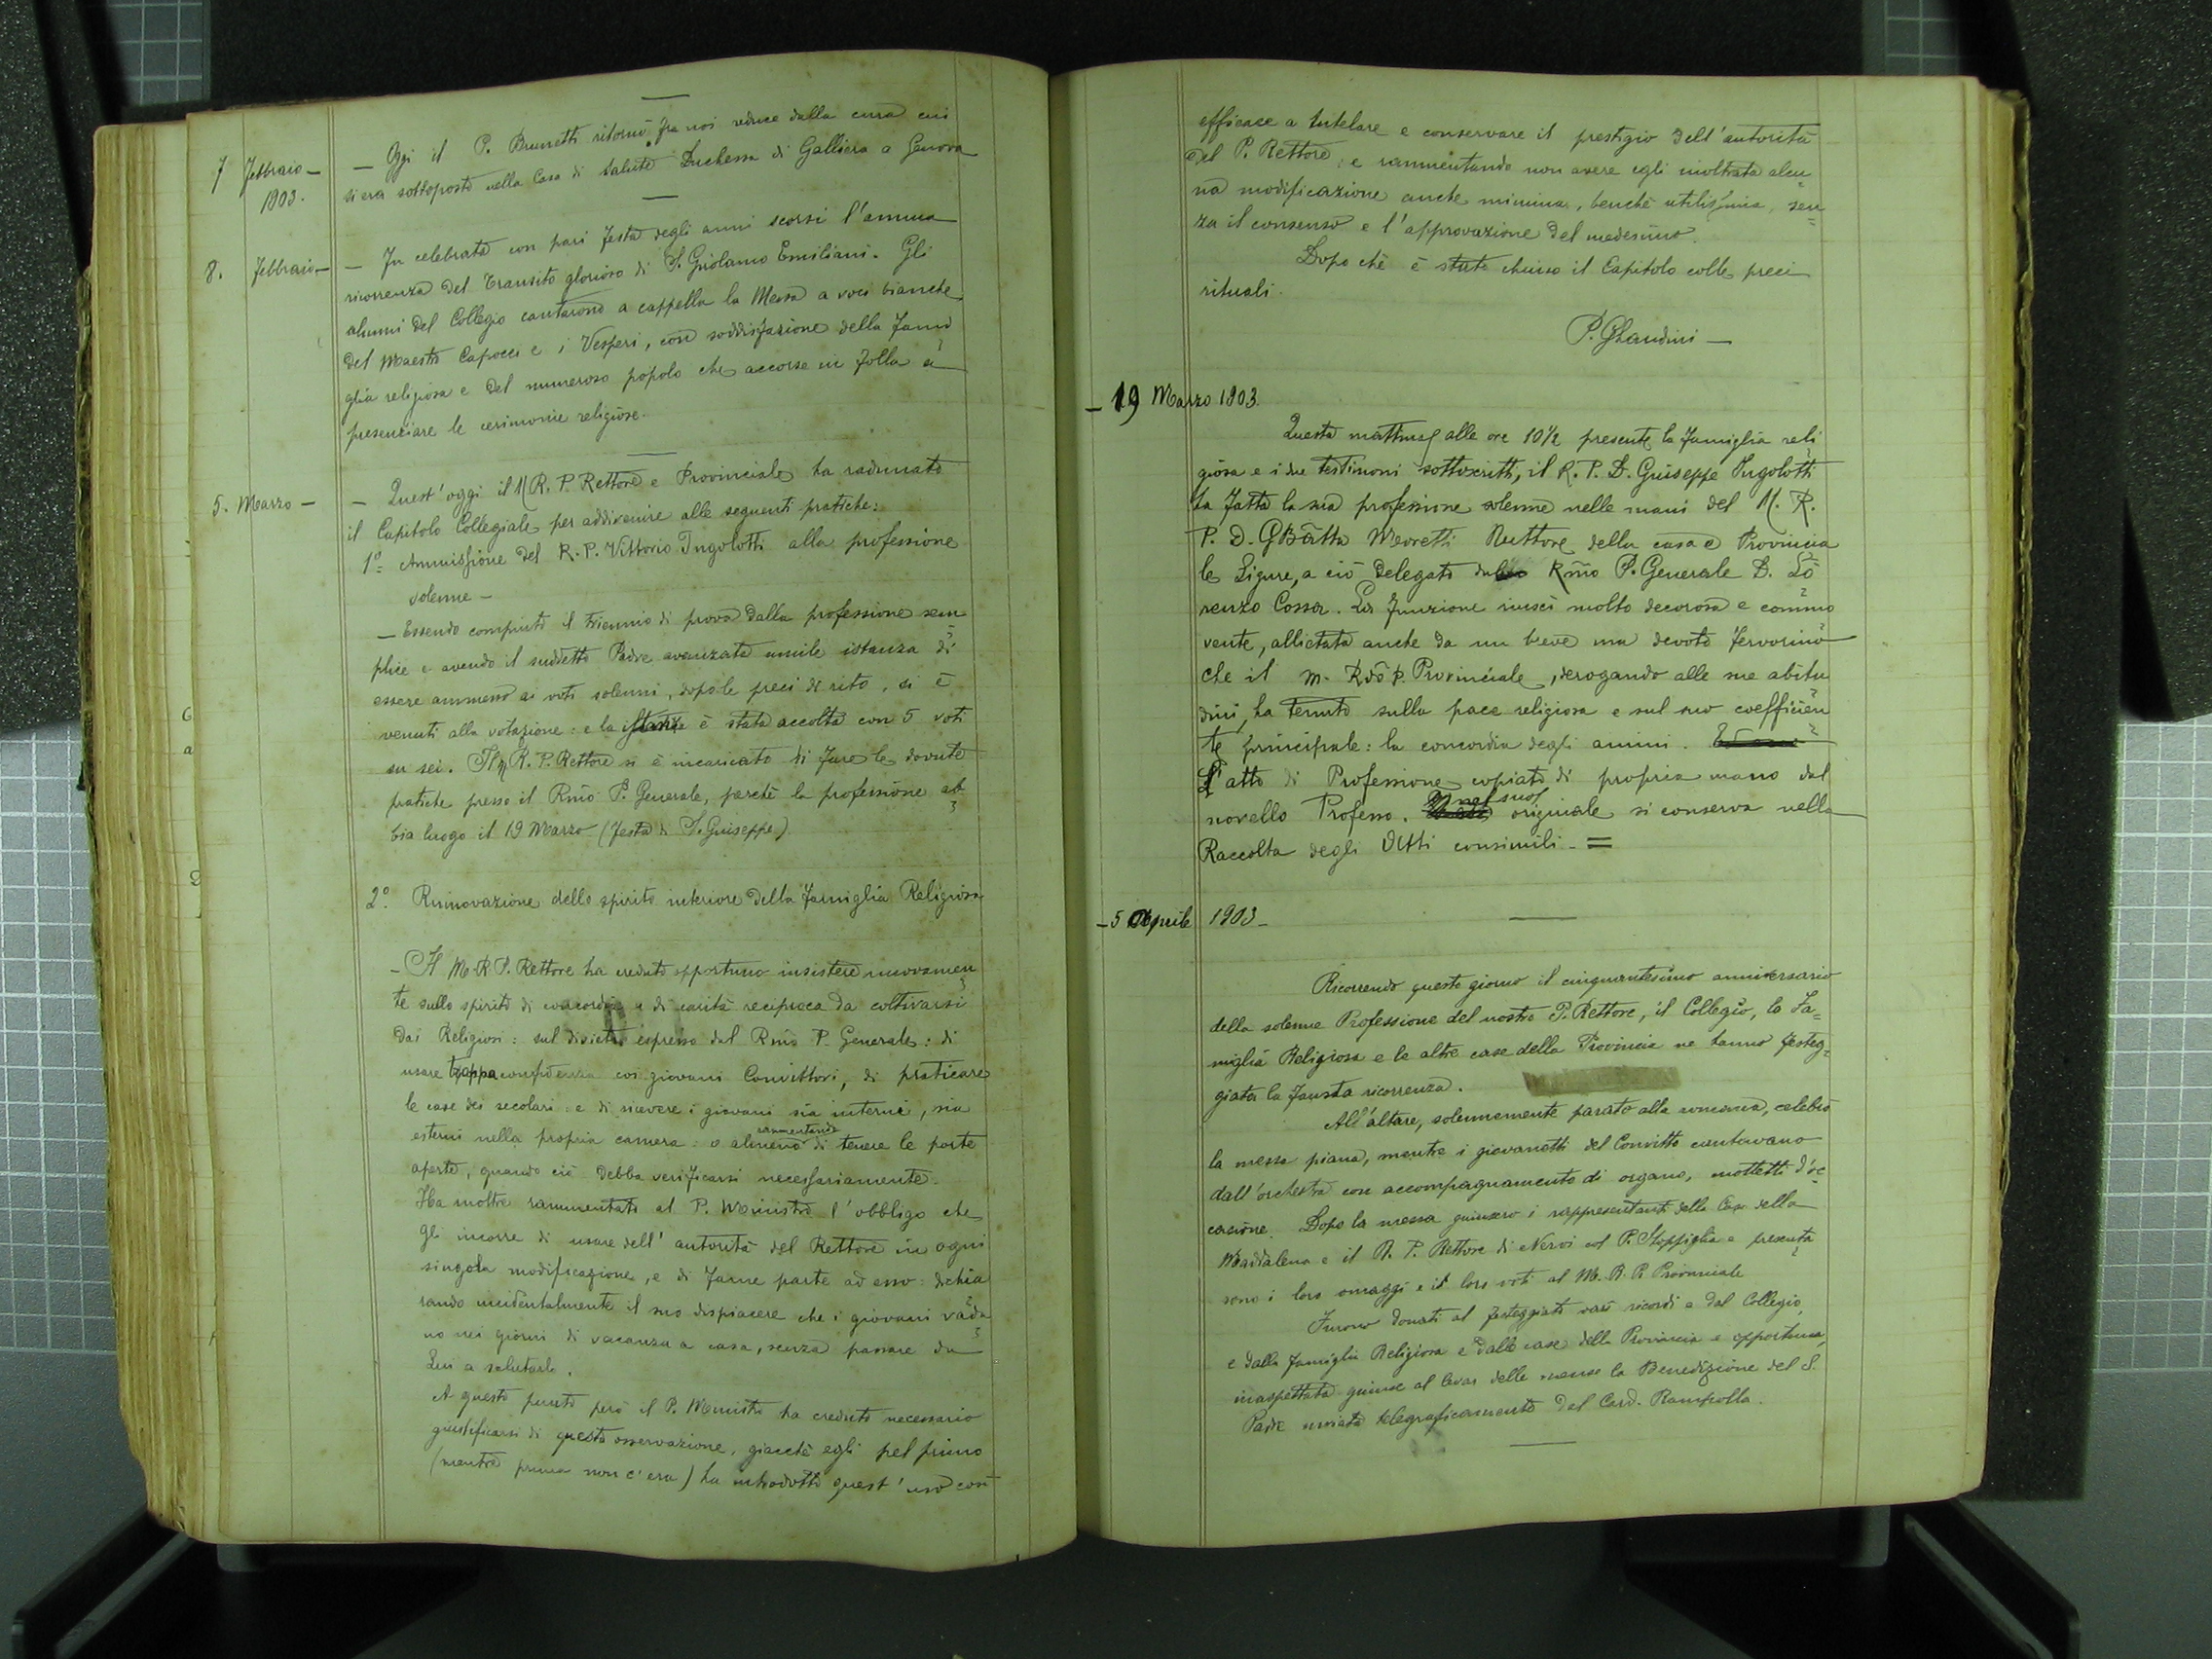 7 Febbraio — — Oggi il P. Brunetti ritornò fra noi reduce dalla cura cui
1903. si era sottoposto nella Casa di Salute Duchessa di Galliera a Genova
8. Febbraio — — Fu celebrata con pari festa degli anni scorsi l'annua
ricorrenza del Transito glorioso di S. Girolamo Emiliani. Gli
alunni del Collegio cantarono a cappella la Messa a voci bianche
del Maestro Capocci e i Vesperi, con soddisfazione della fami
glia religiosa e del numeroso popolo che accorse in folla a
presenziare le cerimonie religiose.
5. Marzo — — Quest'oggi il M. R. P. Rettore e Provinciale ha radunato
il Capitolo Collegiale per addivenire alle seguenti pratiche:
1º Ammissione del R. P. Vittorio Ingolotti alla professione
solenne —
— Essendo compiuto il triennio di prova dalla professione sem
plice e avendo il suddetto Padre avanzata umile istanza di
essere ammesso ai voti solenni, dopo le preci di rito, si è
venuti alla votazione: e la istanza è stata accolta con 5 voti
su sei. Il M. R. P. Rettore si è incaricato di fare le dovute
pratiche presso il Rmo P. Generale, perchè la professione ab
bia luogo il 19 Marzo (festa di S. Giuseppe)
2º. Rinnovazione dello spirito interiore della famiglia Religiosa
— Il M. R. P. Rettore ha creduto opportuno insistere nuovamen
te sullo spirito di concordia e di carità reciproca da coltivarsi
dai Religiosi: sul divieto espresso dal Rmo P. Generale: di
usare troppa confidenza coi giovani Convittori, di praticare
le case dei secolari: e di ricevere i giovani sia interni, sia
esterni nella propria camera: o almeno rammentando di tenere le porte
aperte, quando ciò debba verificarsi necessariamente.
Ha inoltre rammentato al P. Ministro l'obbligo che
gli incorre di usare dell'autorità del Rettore in ogni
singola modificazione, e di farne parte ad esso: dichia
rando incidentalmente il suo dispiacere che i giovani vada
no nei giorni di vacanza a casa, senza passare da
Lui a salutarlo.
A questo punto però il P. Ministro ha creduto necessario
giustificarsi di questa osservazione, giacchè egli pel primo
(mentre prima non c'era) ha introdotto quest'uso così
efficace a tutelare e conservare il prestigio dell'autorità
del P. Rettore; e rammentando non avere egli inoltrata alcu
na modificazione anche minima, benchè utilissima, sen
za il consenso e l'approvazione del medesimo.
Dopo chè è stato chiuso il Capitolo colle preci
rituali.
P. Glandini —
— 19 Marzo 1903.
Questa mattina alle ore 10½ presente la famiglia reli
giosa e i due testimoni sottoscritti, il R. P. D. Giuseppe Ingolotti
ha fatta la sua professione solenne nelle mani del M. R.
P. D. GBatta Moretti Rettore della casa e Provincia
le Ligure, a ciò delegato dal Rmo P. Generale D. Lo
renzo Cossa. La funzione riuscì molto decorosa e commo
vente, allietata anche da un breve ma devoto fervorino
che il M. Rdo P. Provinciale, derogando alle sue abitu
dini, ha tenuto sulla pace religiosa e sul suo coefficien
te principale: la concordia degli animi.
L'atto di Professione copiato di propria mano dal
novello Professo. nel suo originale si conserva nella
Raccolta degli Atti consimili. =
— 5 Aprile 1903 —
Ricorrendo questo giorno il cinquantesimo anniversario
della solenne Professione del nostro P. Rettore, il Collegio, la Fa=
miglia Religiosa e le altre case della Provincia ne hanno festeg=
giata la fausta ricorrenza.
All'altare, solennemente parato alla romana, celebrò
la messa piana, mentre i giovanotti del Convitto cantavano
dall'orchestra con accompagnamento di organo, mottetti d'oc
casione. Dopo la messa giunsero i rappresentanti della Casa della
Maddalena e il R. P. Rettore di Nervi col P. Stoppiglia e presenta
rono i loro omaggi e il loro voti al M. R. P. Provinciale
Furono donati al festeggiato varì ricordi e dal Collegio,
e dalla famiglia Religiosa e dalle case della Provincia e opportuna,
inaspettata giunse al levar delle mense la Benedizione del S.
Padre inviata telegraficamente dal Card. Rampolla.